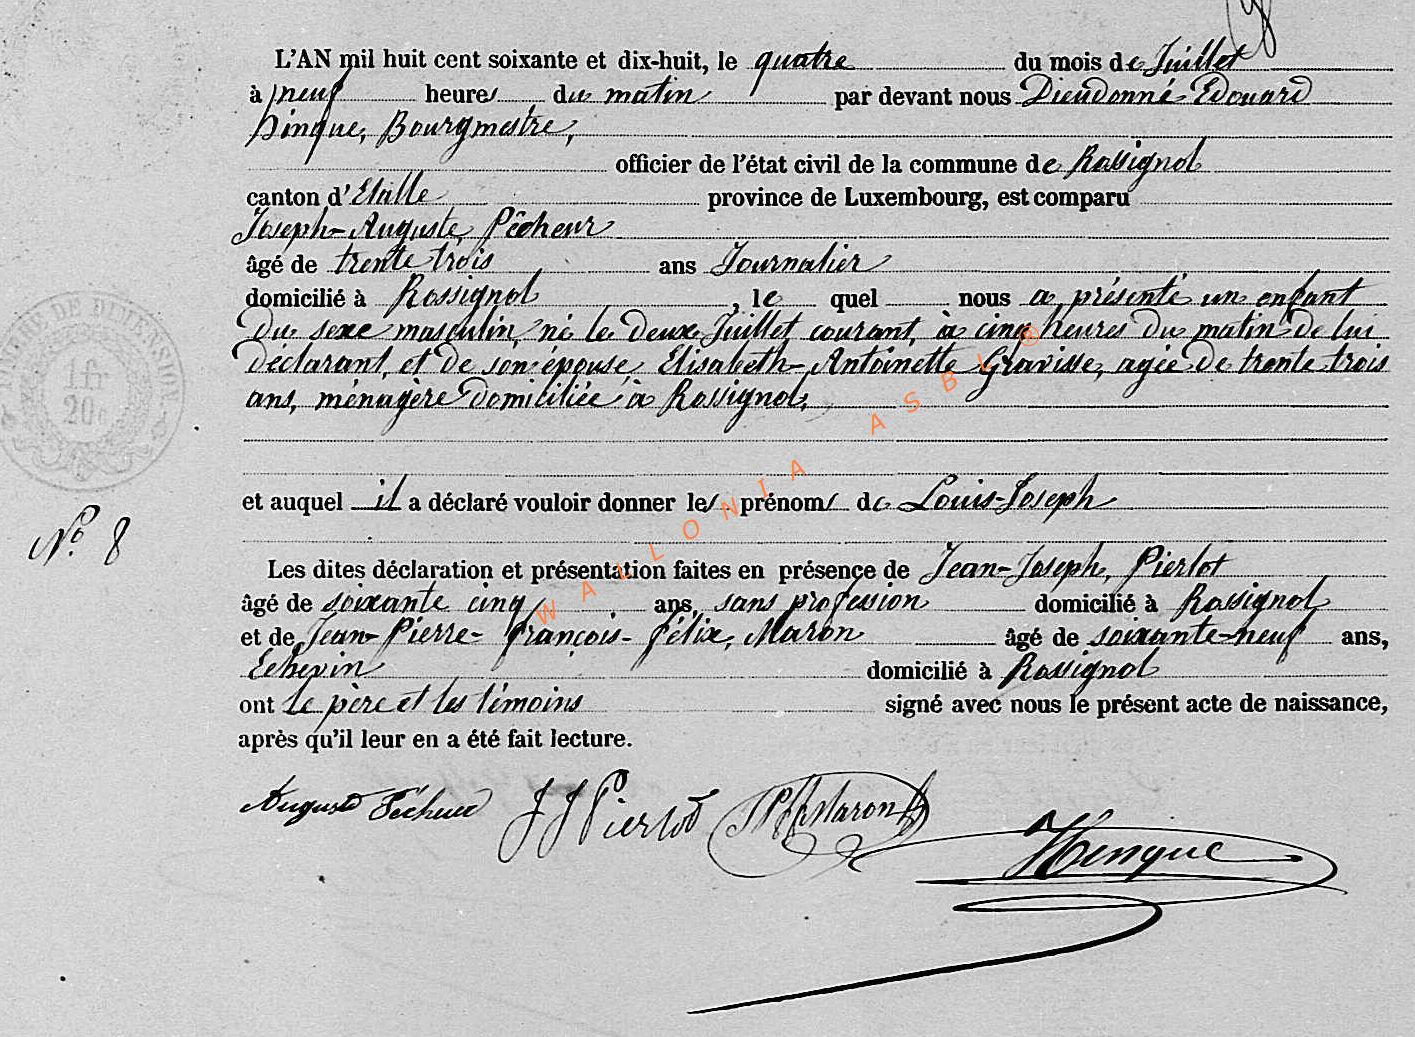 L'AN mil huit cent soixante et dix-huit, le quatre du mois de Juillet
à neuf heures du matin par devant nous Dieudonné Edouard
Hinque, Bourgmestre,
officier de l'état civil de la commune de Rossignol
canton d'Etalle province de Luxembourg, est comparu
Joseph-Auguste, Pêcheur
âgé de trente trois ans Journalier
domicilié à Rossignol, le quel nous a présenté un enfant
du sexe masculin, né le deux Juillet courant, à cinq heures du matin de lui
déclarant, et de son épouse, Elisabeth-Antoinette Gravisse, agée de trente trois
ans, ménagère domiciliée à Rossignol,
et auquel il a déclaré vouloir donner les prénoms de Louis-Joseph
N° 8
Les dites déclaration et présentation faites en présence de Jean-Joseph, Pierlot
âgé de soixante cinq ans, sans profession domicilié à Rossignol
et de Jean-Pierre-François-Félix, Maron âgé de soixante-neuf ans,
Echevin domicilié à Rossignol
ont le père et les témoins signé avec nous le présent acte de naissance,
après qu'il leur en a été fait lecture.
Auguste Pécheur JJ Pierlot JPFF Maron
Hinque
TIMBRE DE DIMENSION
fr
20c
WALLONIA ASBL ®